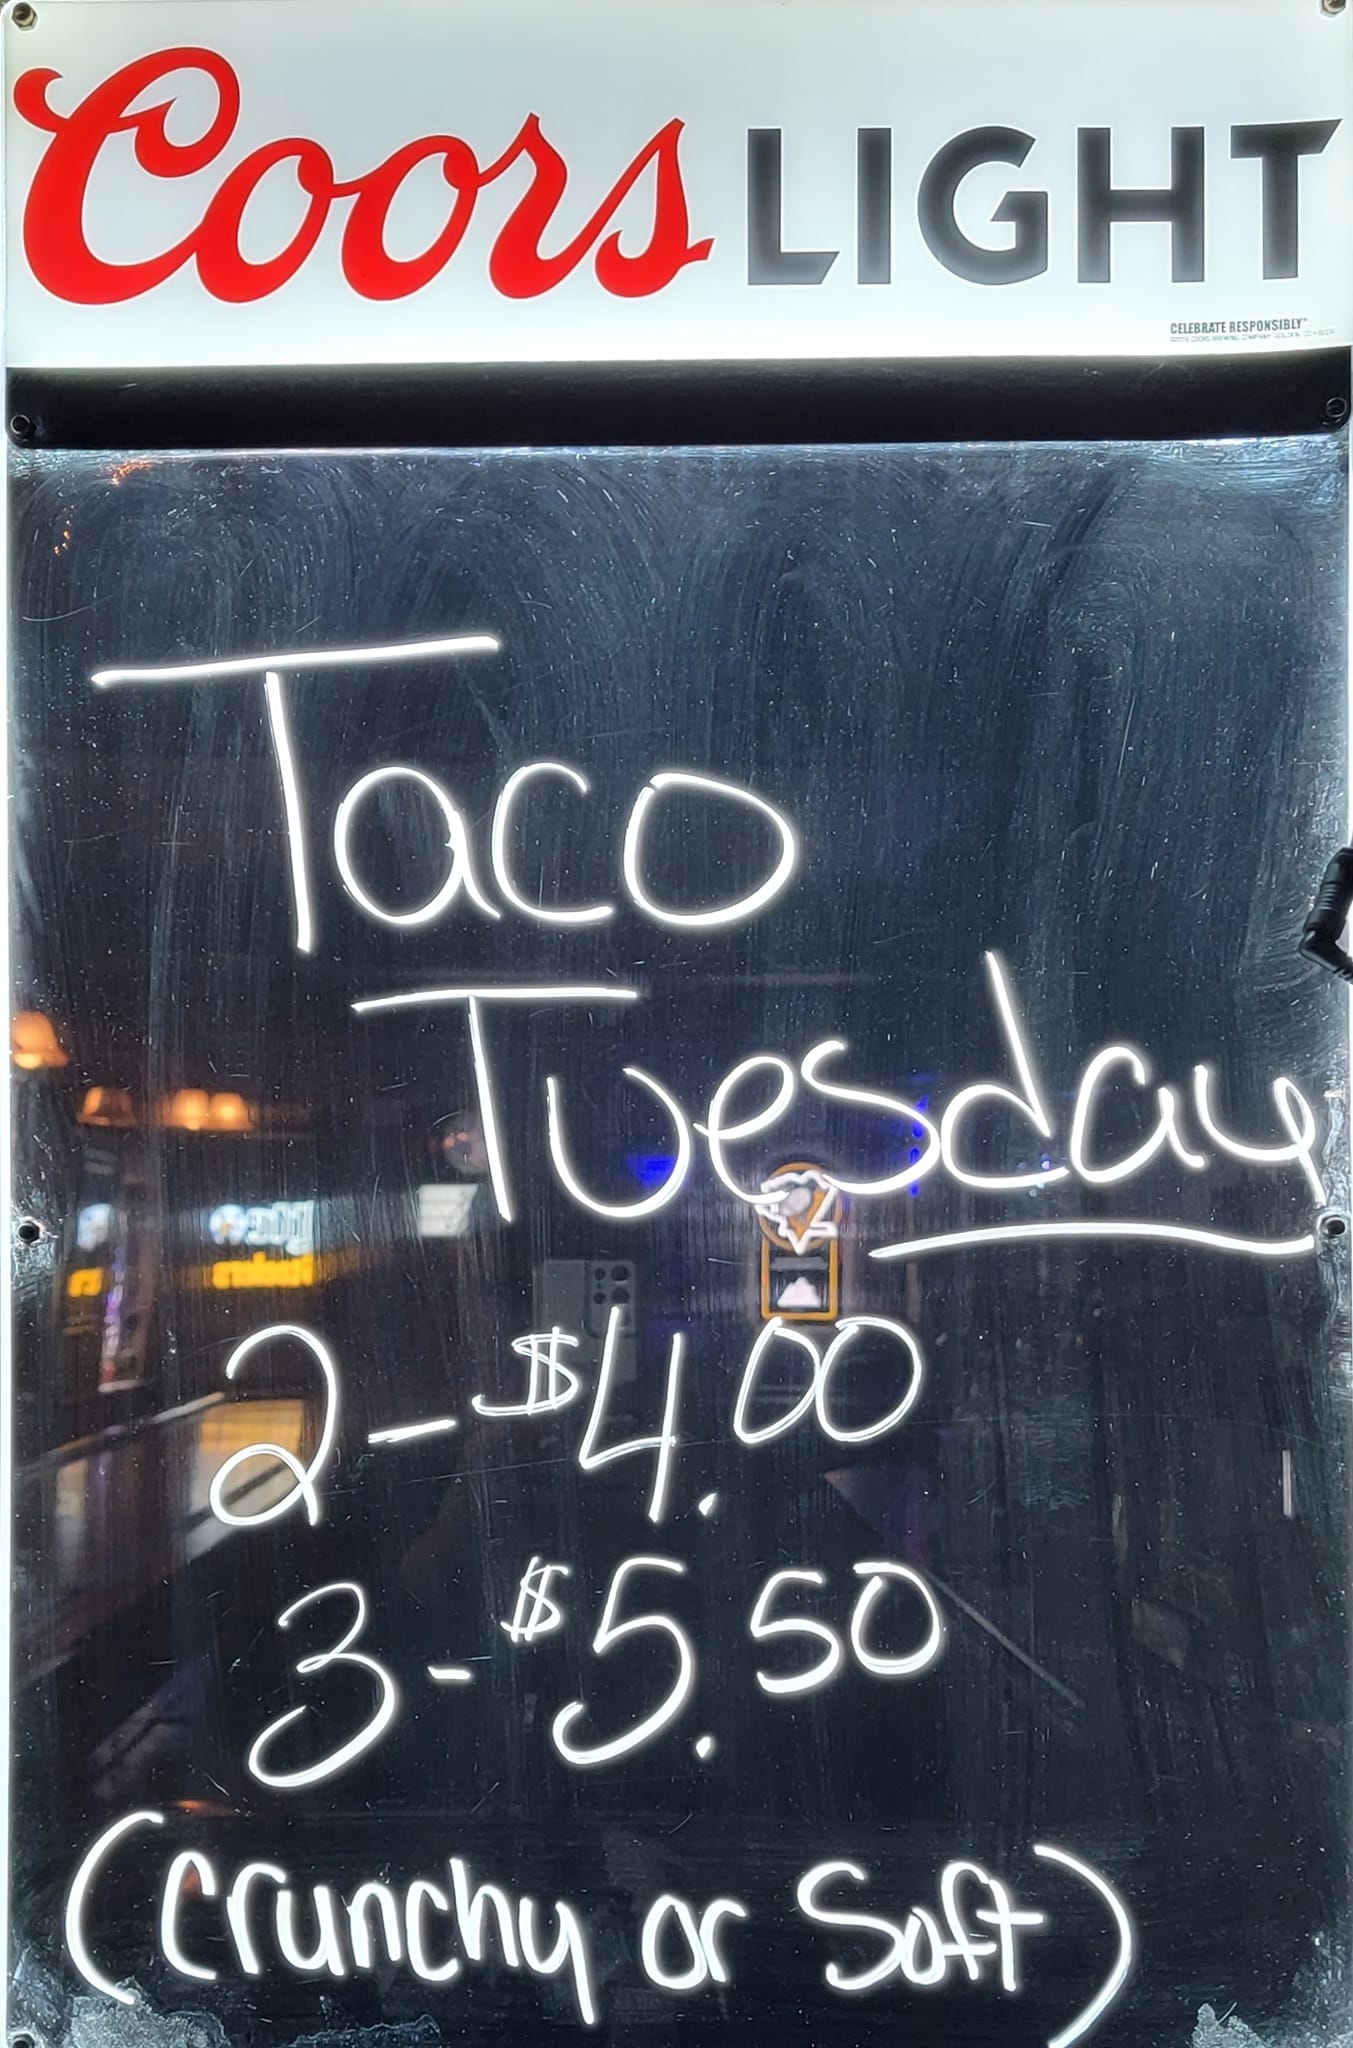 Coors LIGHT
CELEBRATE RESPONSIBLY™
Taco
Tuesday
2 - $4.00
3 - $5.50
(crunchy or Soft)